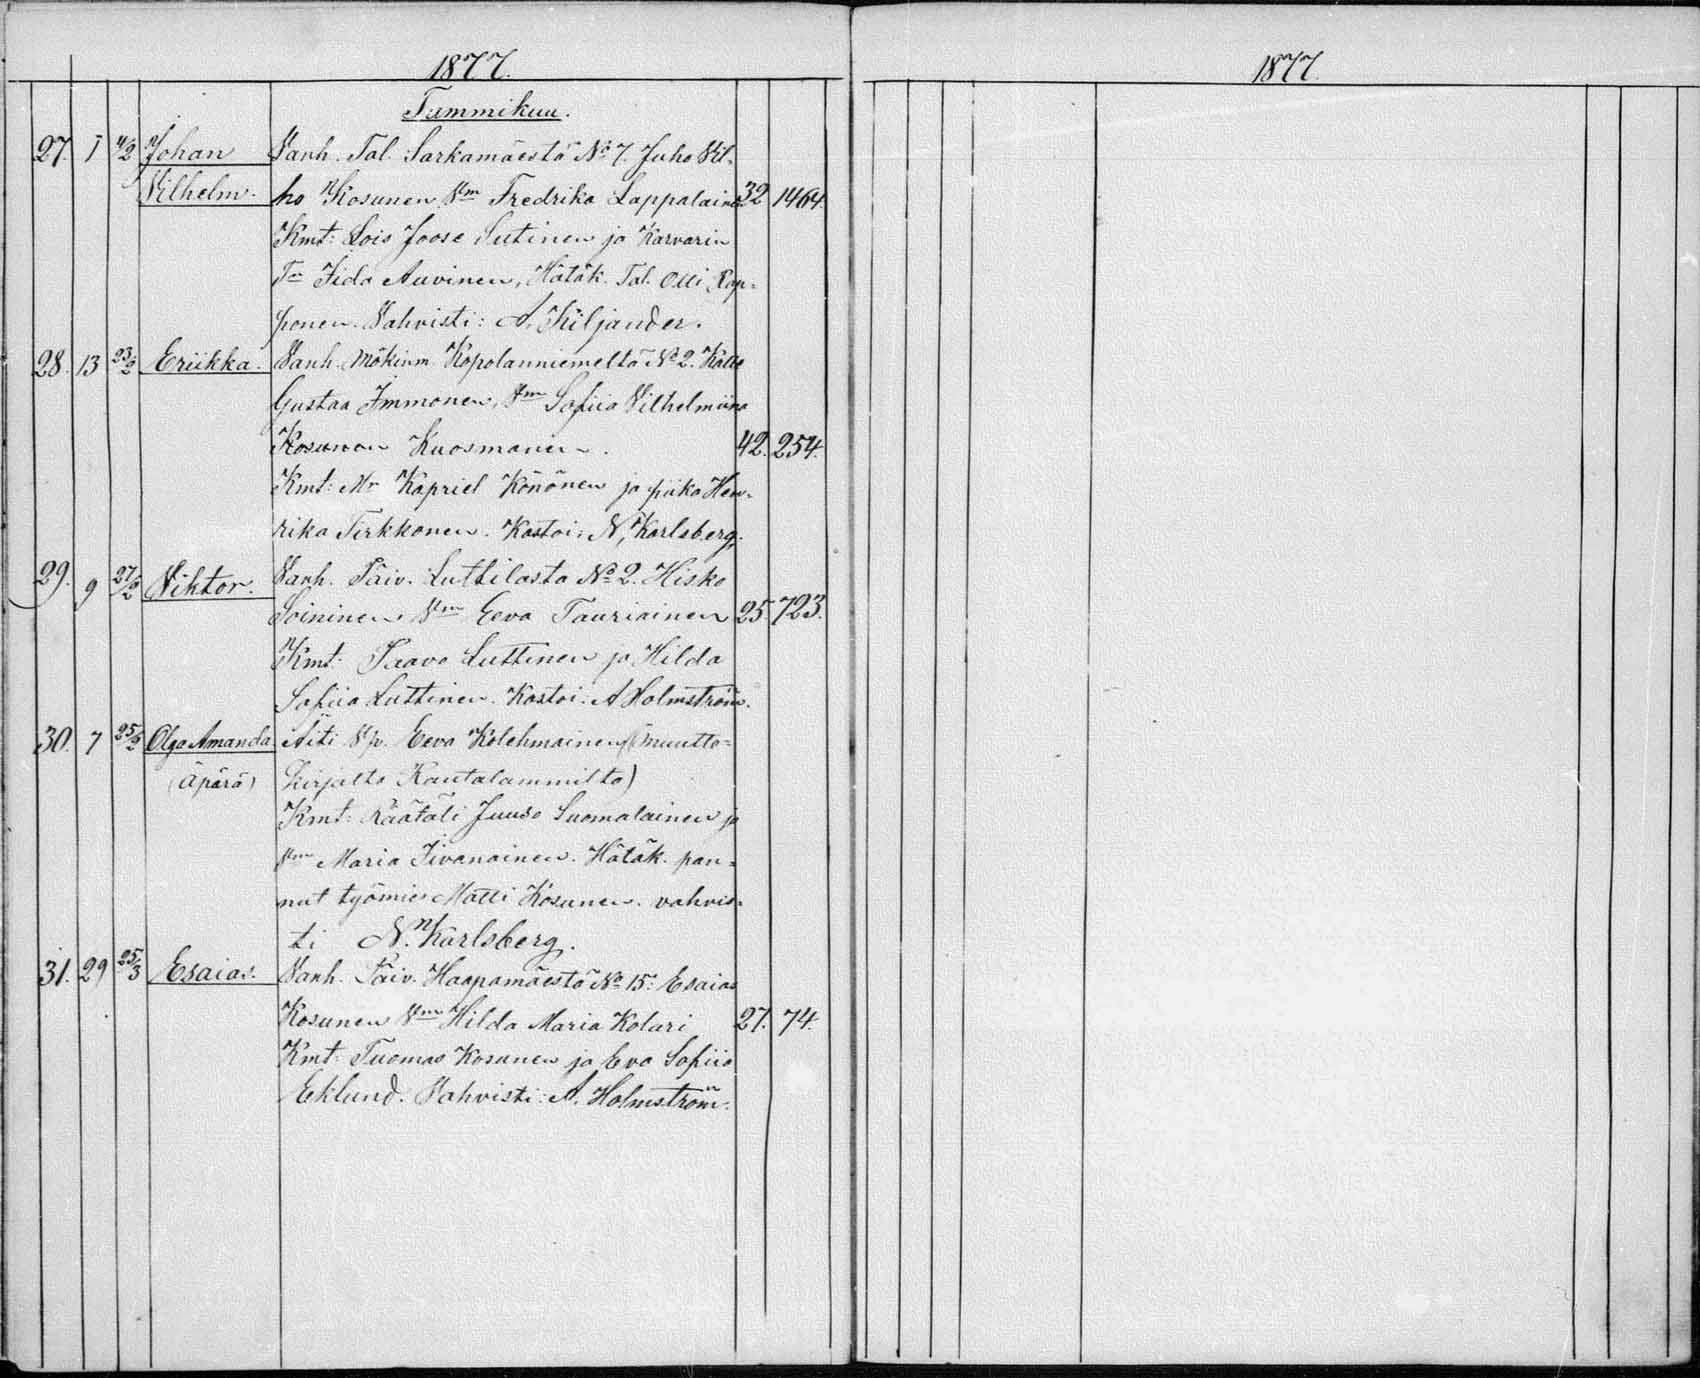 1877.
Tammikuu.
27. 1 4/2 Johan Vanh. Tal. Sarkamäestä No 7. Juho Vil-
Vilhelm. ho Kosunen Vm Fredrika Lappalainen 32 1464.
Kmt: Lois Joose Sutinen ja Karvarin
Tr Iida Auvinen, Hätäk. Tal. Olli Rap-
ponen. Vahvisti: A. Kiljander.
28. 13 23/2 Eriikka. Vanh. Mökinm. Kopolanniemeltä No 2. Kalle
Gustaa Immonen, Vm Sofiia Vilhelmiina
Kosunon Kuosmanen. 42. 254.
Kmt: Mr Kapriel Könönen ja piika Hen-
rika Tirkkonen. Kastoi: N. Karlsberg.
29. 9 27/2 Viktor. Vanh. Päiv. Luttilasta No 2. Hisko
Soininen Vm Eeva Tauriainen 25 723.
Kmt: Paavo Luttinen ja Hilda
Sofiia Luttinen. Kastoi: A Holmström.
30. 7 25/2 Olga Amanda Äiti Vp. Eeva Kolehmainen (muutto-
(äpärä) kirjatta Rautalammilta)
Kmt: Räätäli Juuso Suomalainen ja
Vm Maria Iivanainen. Hätäk. pan-
nut työmies Matti Kosunen. vahvis-
ti N. Karlsberg.
31. 29 25/3 Esaias. Vanh. Päiv. Haapamäestä No 15: Esaias
Kosunen Vm Hilda Maria Kolari 27. 74.
Kmt: Tuomas Kosunen ja Eva Sofiia
Eklund. Vahvisti: A. Holmström.
1877.